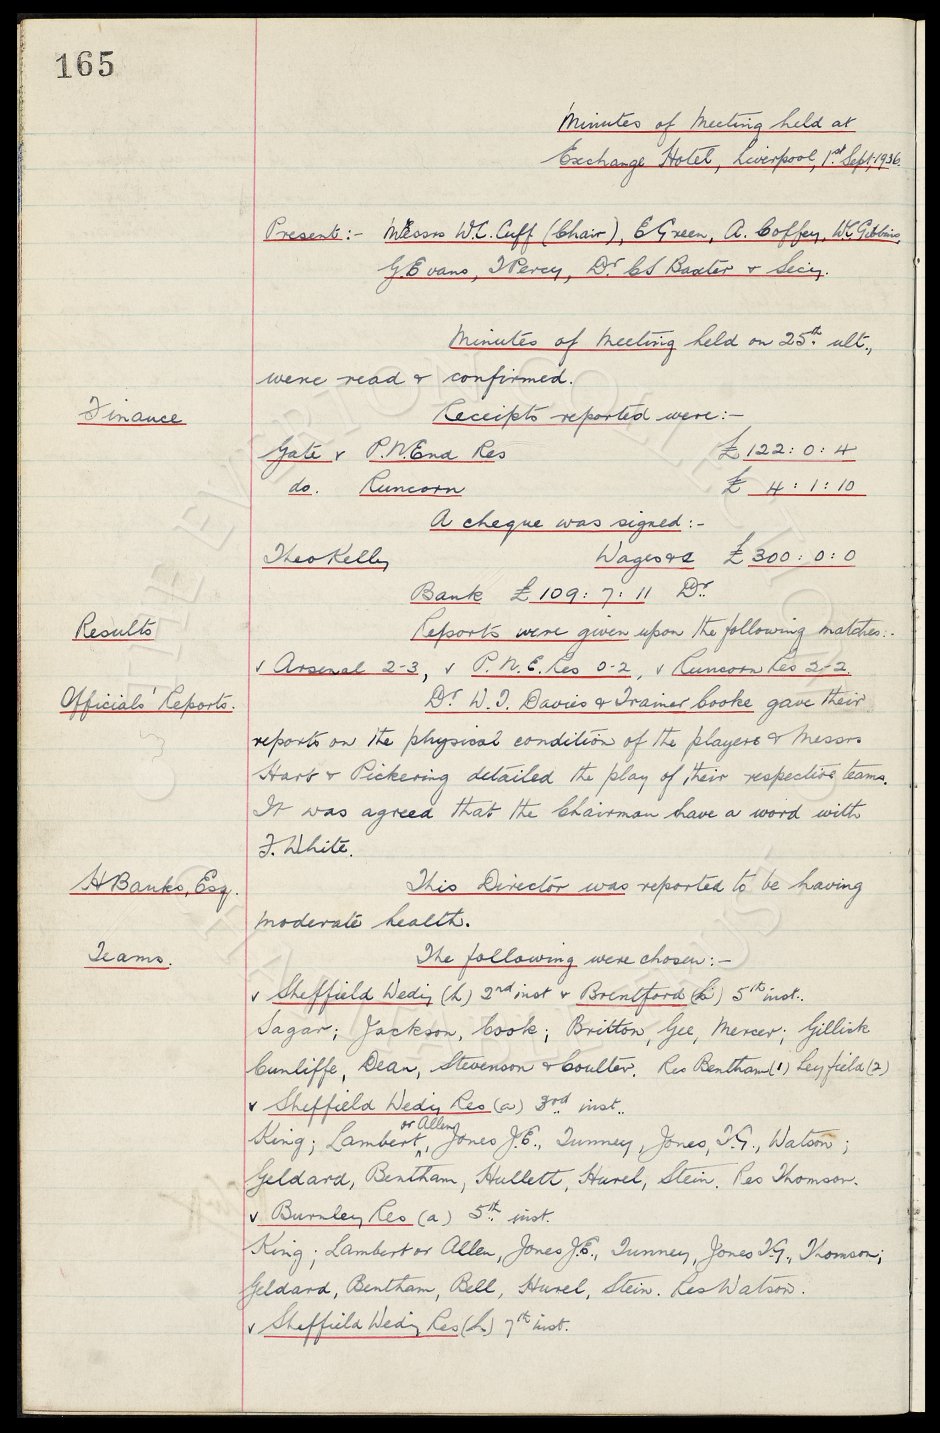 165
Minutes of Meeting held at
Exchange Hotel, Liverpool, 1st. Sept. 1936.
Present:- Messrs W.C. Cuff (Chair), E Green, A. Coffey, W.C. Gibbins,
G. Evans, T Percy, Dr. C S Baxter & Secy.
Minutes of Meeting held on 25th. ult.,
were read & confirmed.
Finance
Receipts reported were:-
Gate v P.N.End Res £ 122: 0: 4
do. Runcorn £ 4: 1: 10
A cheque was signed:-
Theo Kelly Wages &c £ 300: 0: 0
Bank £ 109: 7: 11 Dr.
Results
Reports were given upon the following matches:-
v Arsenal 2-3, v P.N.E. Res 0-2, v Runcorn Res 2-2.
Officials' Reports.
Dr. W.J. Davies & Trainer Cooke gave their
reports on the physical condition of the players & Messrs
Hart & Pickering detailed the play of their respective teams.
It was agreed that the Chairman have a word with
T. White.
H Banks, Esq.
This Director was reported to be having
moderate health.
Teams.
The following were chosen:-
v Sheffield Wedy (h) 2nd inst & Brentford (h) 5th inst..
Sagar; Jackson, Cook; Britton, Gee, Mercer; Gillick
Cunliffe, Dean, Stevenson & Coulter. Res Bentham (1) Leyfield (2)
v Sheffield Wedy Res (a) 3rd inst..
King; Lambert or Allen, Jones J.E., Tunney, Jones, T.G., Watson;
Geldard, Bentham, Hullett, Hurel, Stein. Res Thomson.
v Burnley Res (a) 5th. inst.
King; Lambert or Allen, Jones J.E., Tunney, Jones T.G., Thomson;
Geldard, Bentham, Bell, Hurel, Stein. Res Watson.
v Sheffield Wedy Res (h) 7th inst.
THE EVERTON COLLECTION
CHARITABLE TRUST